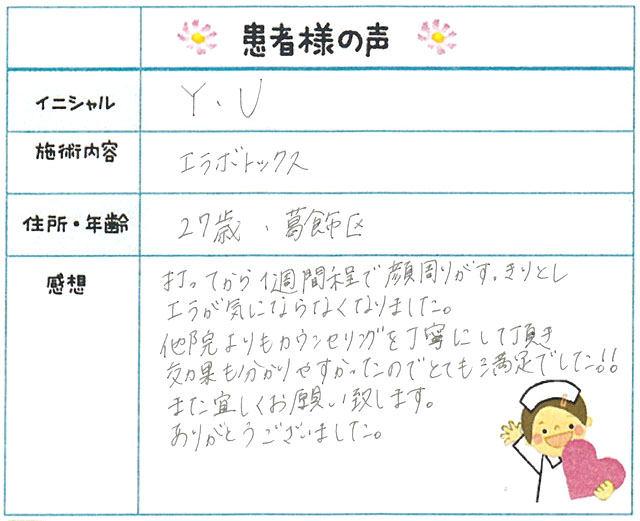 患者様の声
イニシャル
Y.U
施術内容
エラボトックス
住所・年齢
27歳、葛飾区
感想
打ってから1週間程で顔周りがすっきりとし
エラが気にならなくなりました。
他院よりもカウンセリングを丁寧にして頂き
効果も分かりやすかったのでとても満足でした!!
また宜しくお願い致します。
ありがとうございました。